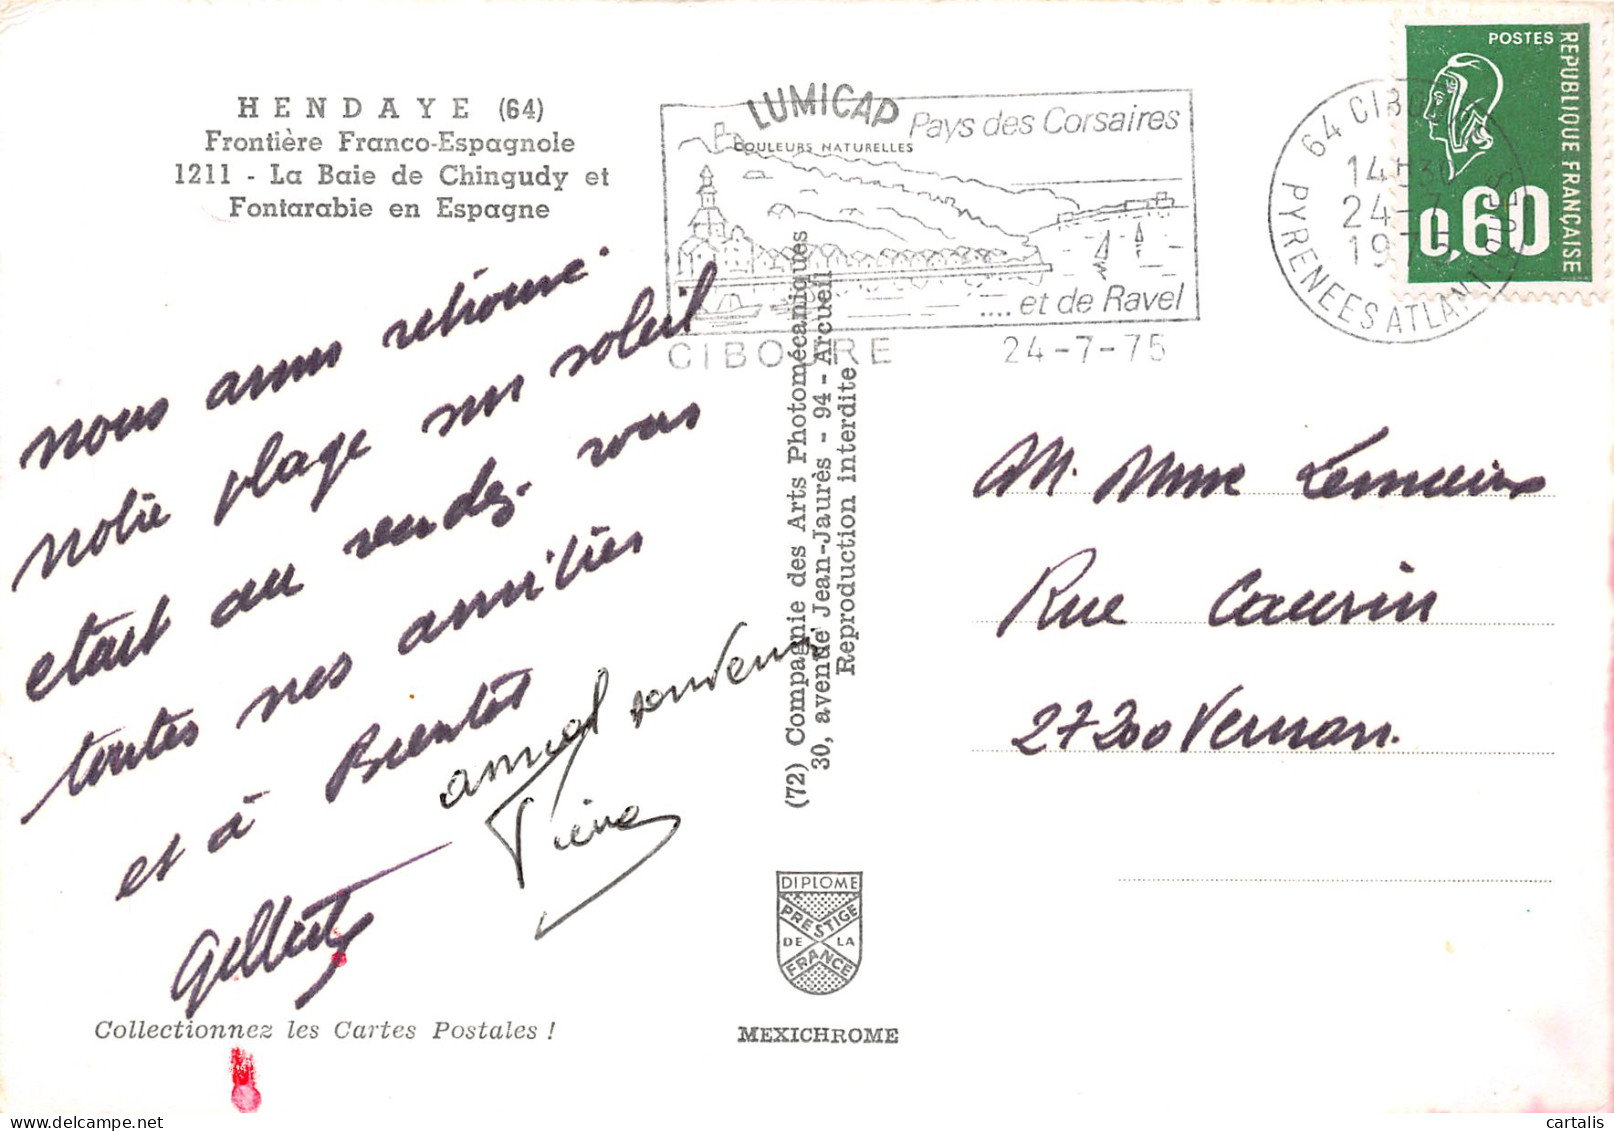 HENDAYE (64)
Frontière Franco-Espagnole
1211 - La Baie de Chingudy et
Fontarabie en Espagne
LUMICAP
COULEURS NATURELLES
Pays des Corsaires
....et de Ravel
CIBOURE 24-7-75
64 CIBOURE
14H30
24-7
1975
PYRENEES ATLANTIQUES
POSTES
REPUBLIQUE FRANÇAISE
0,60
nous avons retrouvé
notre plage sur soleil
etait au rendez-vous
toutes nos amitiés
et à Bientôt
Gilberte
amical souvenir
Pierre
(72) Compagnie des Arts Photomécaniques
30, avenue Jean-Jaurès - 94 - Arcueil
Reproduction interdite
M. Mme Lemieux
Rue Cauvin
27200 Vernon.
DIPLOME
PRESTIGE
DE LA
FRANCE
MEXICHROME
Collectionnez les Cartes Postales !
cartalis